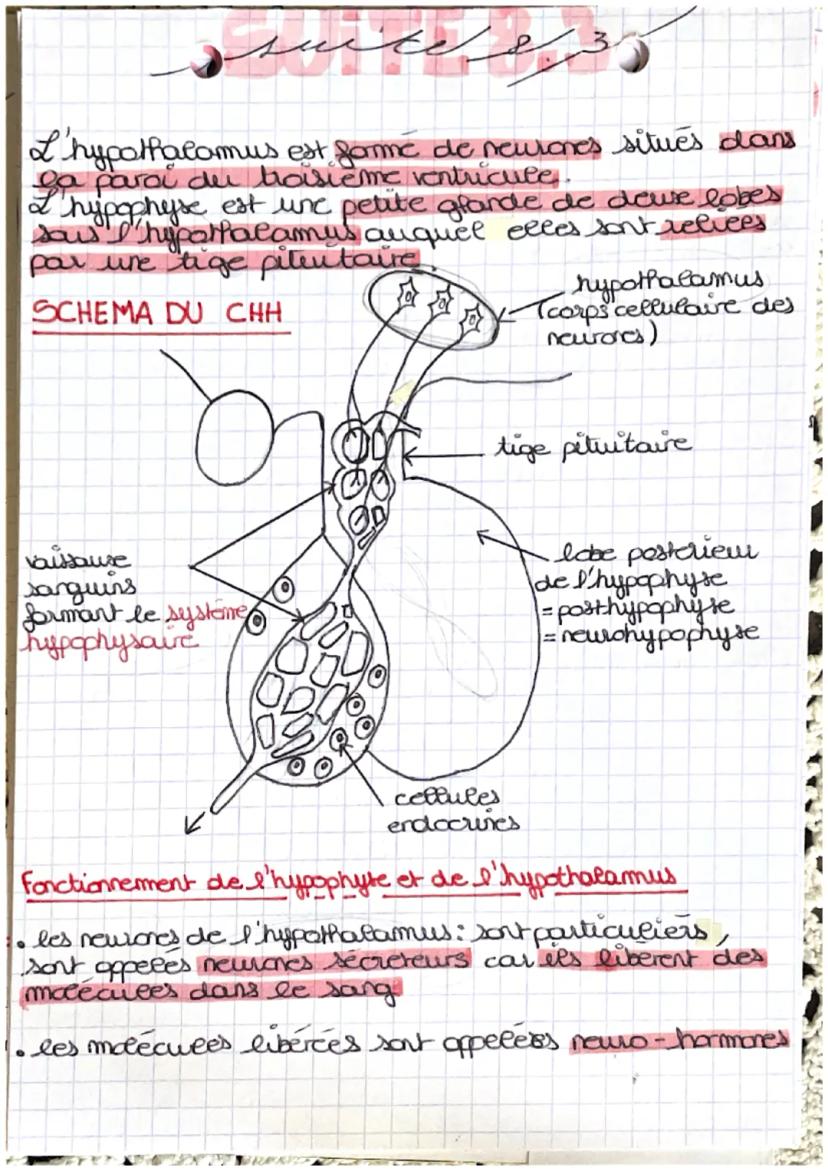 SUITE 8.3
suite 8.3
L'hypothalamus est formé de neurones situés dans
la paroi du troisième ventricule.
L'hypophyse est une petite glande de deux lobes
sous l'hypothalamus auquel elles sont reliées
par une tige pituitaire.
SCHEMA DU CHH
hypothalamus
(corps cellulaire des
neurones)
tige pituitaire
vaisseaux
sanguins
formant le système
hypophysaire
lobe posterieur
de l'hypophyse
= posthypophyse
= neurohypophyse
cellules
endocrines
Fonctionnement de l'hypophyse et de l'hypothalamus
• les neurones de l'hypothalamus : sont particuliers,
sont appelées neurones sécreteurs car ils libèrent des
molécules dans le sang
• les molécules libérées sont appelées neuro-hormones